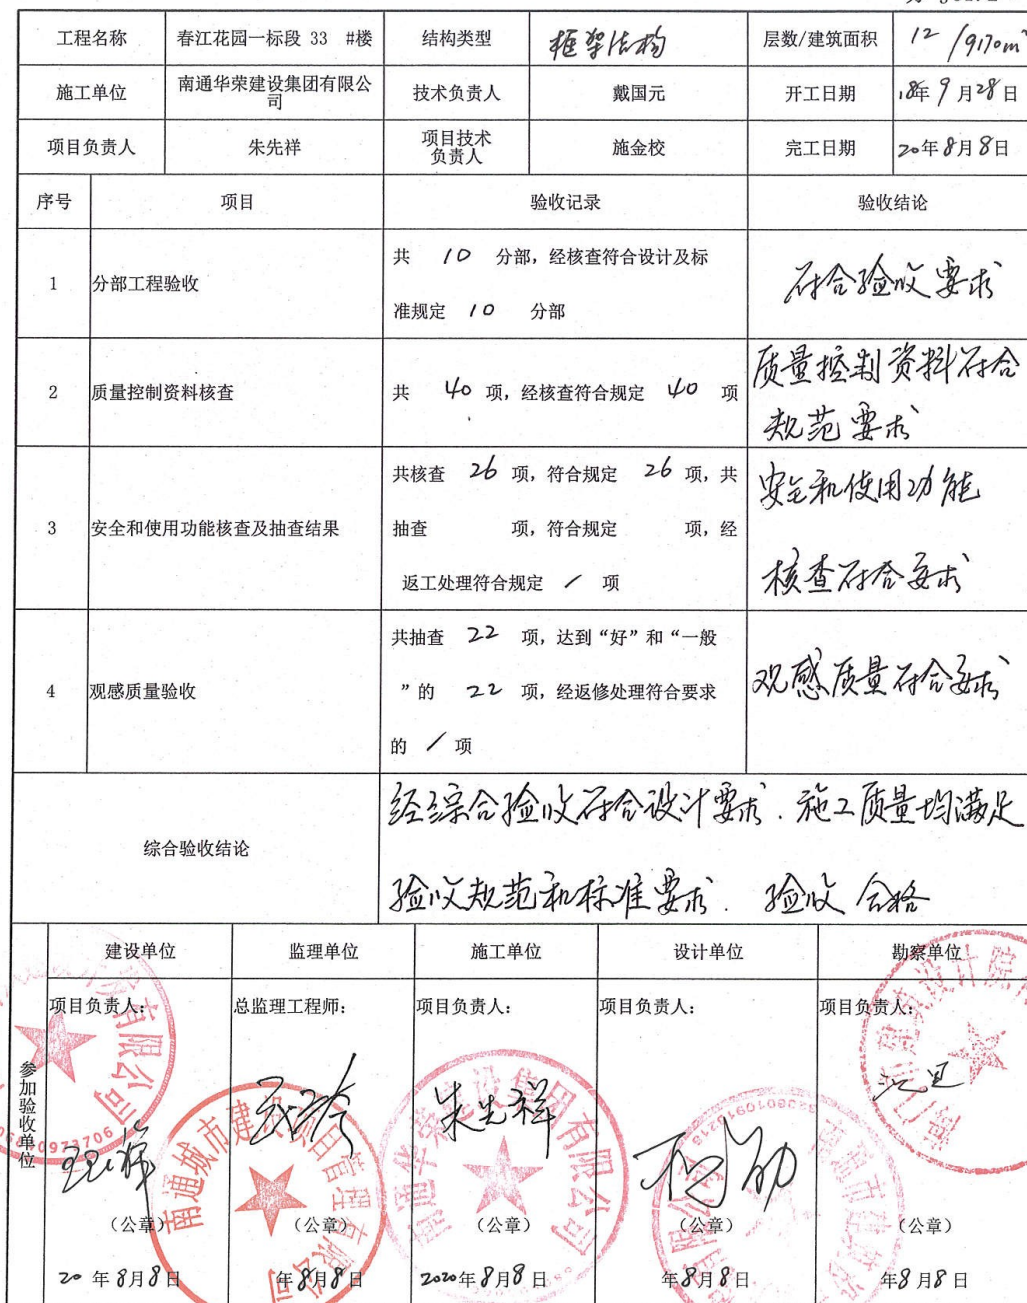 工程名称 春江花园一标段 33 #楼 结构类型 框架结构 层数/建筑面积 12 /9170m²
施工单位 南通华荣建设集团有限公司 技术负责人 戴国元 开工日期 18年9月28日
项目负责人 朱先祥 项目技术负责人 施金校 完工日期 20年8月8日
序号 项目 验收记录 验收结论
1 分部工程验收 共 10 分部，经核查符合设计及标
准规定 10 分部
符合验收要求
2 质量控制资料核查 共 40 项，经核查符合规定 40 项
质量控制资料符合
规范要求
3 安全和使用功能核查及抽查结果
共核查 26 项，符合规定 26 项，共
抽查 项，符合规定 项，经
返工处理符合规定 / 项
安全和使用功能
核查符合要求
4 观感质量验收
共抽查 22 项，达到“好”和“一般
”的 22 项，经返修处理符合要求
的 / 项
观感质量符合要求
综合验收结论
经综合验收符合设计要求．施工质量均满足
验收规范和标准要求．验收合格
参加验收单位
建设单位 监理单位 施工单位 设计单位 勘察单位
项目负责人： 总监理工程师： 项目负责人： 项目负责人： 项目负责人：
朱先祥
有限公司
南通城市建设项目管理有限公司
南通华荣建设集团有限公司
(公章) (公章) (公章) (公章) (公章)
20 年8月8日 年8月8日 2020年8月8日 年8月8日 年8月8日